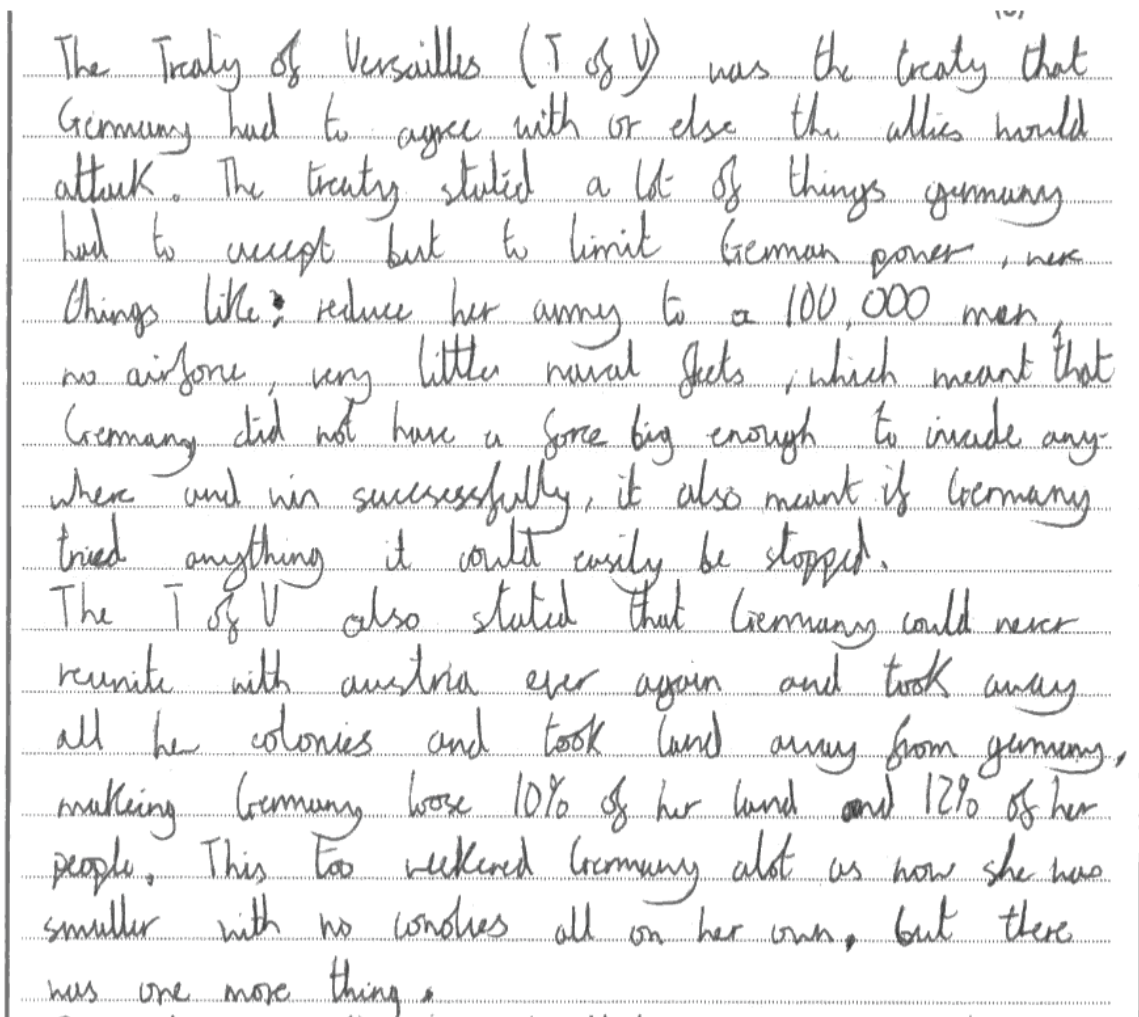 The Treaty of Versailles (T of V) was the treaty that
Germany had to agree with or else the allies would
attack. The treaty stated a lot of things germany
had to accept but to limit German power, were
things like: reduce her army to a 100,000 men,
no airforce, very little naval fleets, which meant that
Germany did not have a force big enough to invade any-
where and win successfully, it also meant if Germany
tried anything it could easily be stopped.
The T of V also stated that Germany could never
reunite with austria ever again and took away
all her colonies and took land away from germany,
makeing Germany loose 10% of her land and 12% of her
people. This too weekened Germany alot as now she was
smaller with no all on her own, but there
was one more thing.